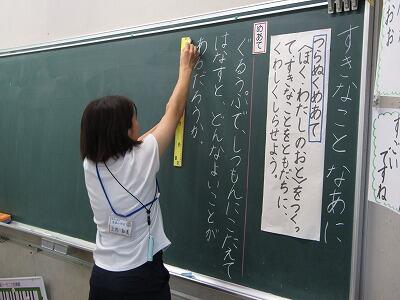 すきなこと なあに
つらぬくめあて
〈ぼく・わたしのおと〉をつくっ
て、すきなことをともだちに、
くわしくしらせよう。
めあて
ぐるうぷで、しつもんにこたえて
はなすと、どんなよいことが
あるだろうか。
すごい
ですね